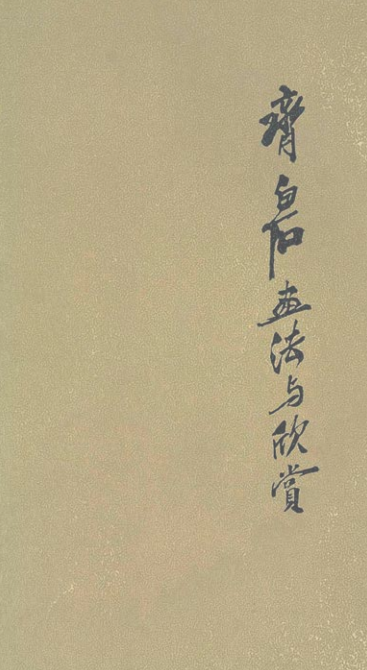 齊白石画法与欣赏